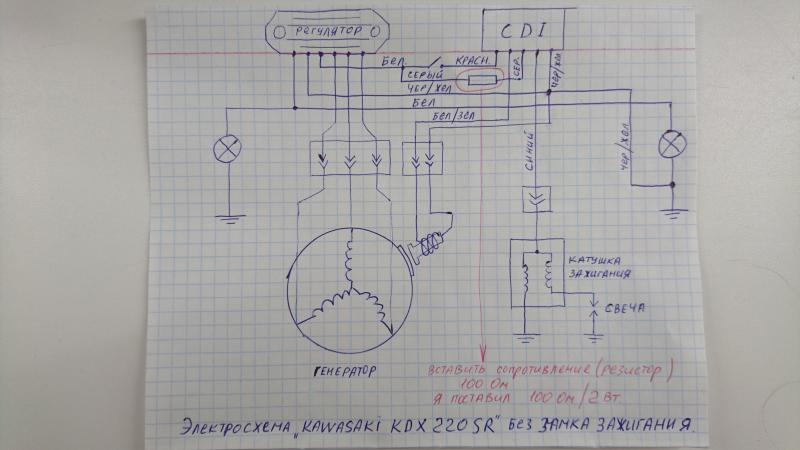 РЕГУЛЯТОР
CDI
БЕЛ.
КРАСН.
СЕРЫЙ
СЕР.
ЧЕР/ЖЕЛ
ЧЕР/ЖЕЛ
БЕЛ
БЕЛ/ЗЕЛ
СИНИЙ
ЧЕР/ЖЕЛ.
КАТУШКА
ЗАЖИГАНИЯ
СВЕЧА
ГЕНЕРАТОР
ВСТАВИТЬ СОПРОТИВЛЕНИЕ (РЕЗИСТОР)
100 Ом
Я ПОСТАВИЛ 100 Ом/2 Вт
ЭЛЕКТРОСХЕМА „KAWASAKI KDX 220 SR" БЕЗ ЗАМКА ЗАЖИГАНИЯ.